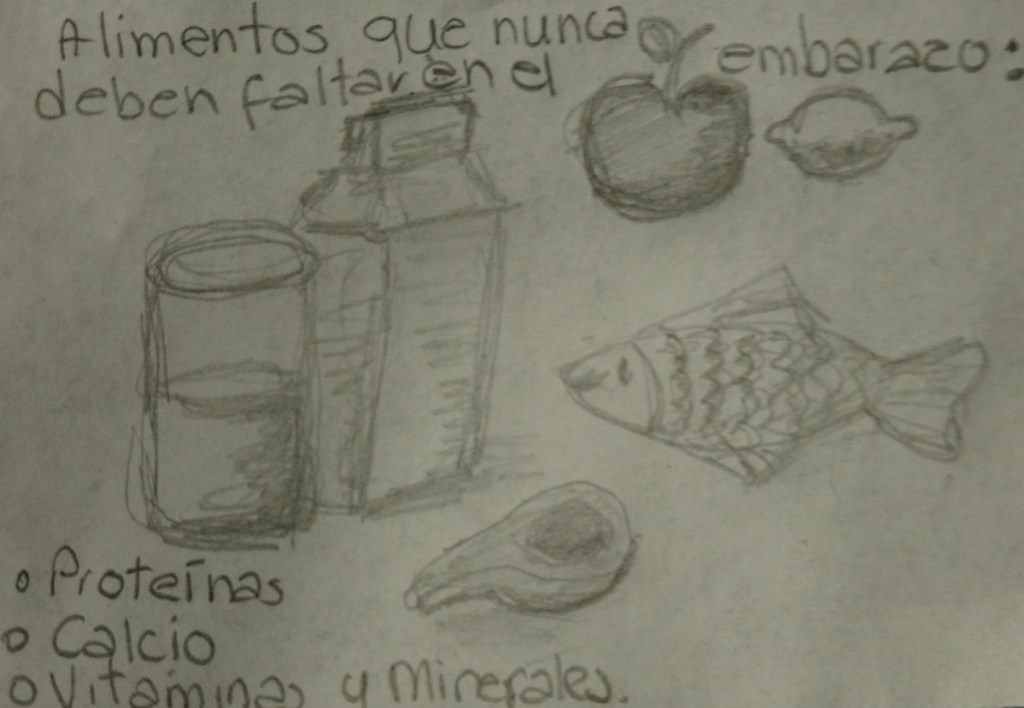 Alimentos que nunca
deben faltar en el embarazo:
Proteínas
Calcio
Vitaminas y Minerales.